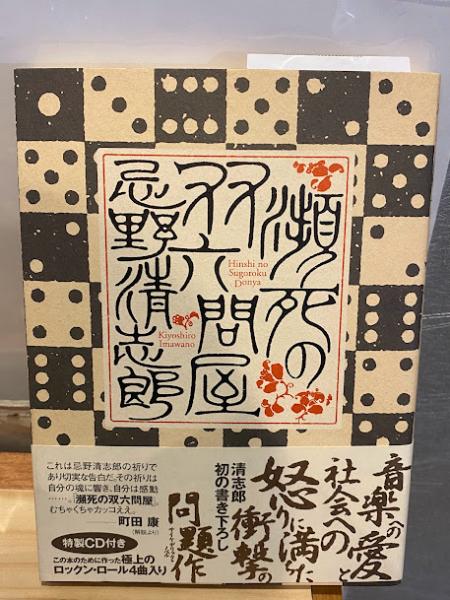 瀕死の
双六問屋
Hinshi no
Sugoroku
Donya
忌野清志郎
Kiyoshiro
Imawano
音楽への愛と
社会への
怒りに満ちた
衝撃の
問題作
清志郎
初の書き下ろし
これは忌野清志郎の祈りで
あり切実な告白だ。その祈りは
自分の魂に響き、自分は感動
……。『瀕死の双六問屋』
むちゃくちゃカッコええ。
町田 康
(解説より)
特製CD付き
この本のために作った極上の
ロックン・ロール4曲入り